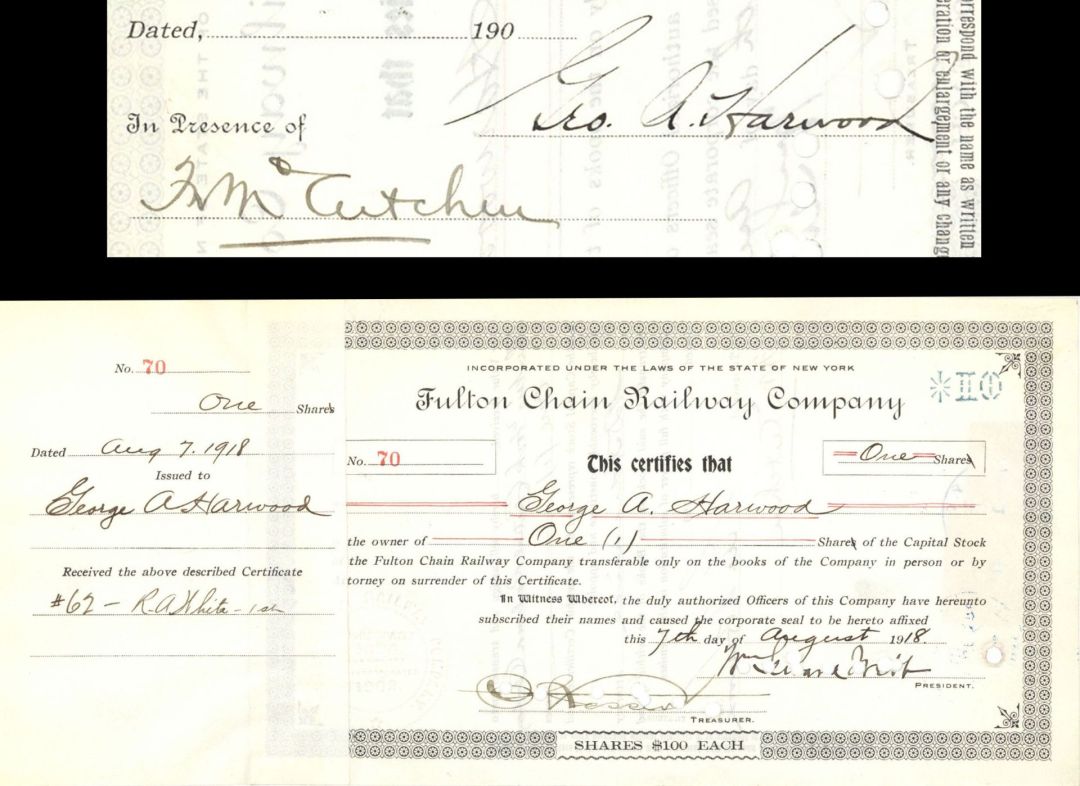 Dated, 190
Geo. A. Harwood
In Presence of
McCutchen
orrespond with the name as written
eration or enlargement or any chang
No. 70
One Shares
Dated Aug 7. 1918
Issued to
George A Harwood
Received the above described Certificate
#62 - R.A White - 1 sh
INCORPORATED UNDER THE LAWS OF THE STATE OF NEW YORK
Fulton Chain Railway Company
No. 70
This certifies that
One Shares
George A. Harwood
the owner of One (1) Shares of the Capital Stock
the Fulton Chain Railway Company transferable only on the books of the Company in person or by
torney on surrender of this Certificate.
In Witness Whereof, the duly authorized Officers of this Company have hereunto
subscribed their names and caused the corporate seal to be hereto affixed
this 7th day of August 1918.
PRESIDENT.
TREASURER.
SHARES $100 EACH